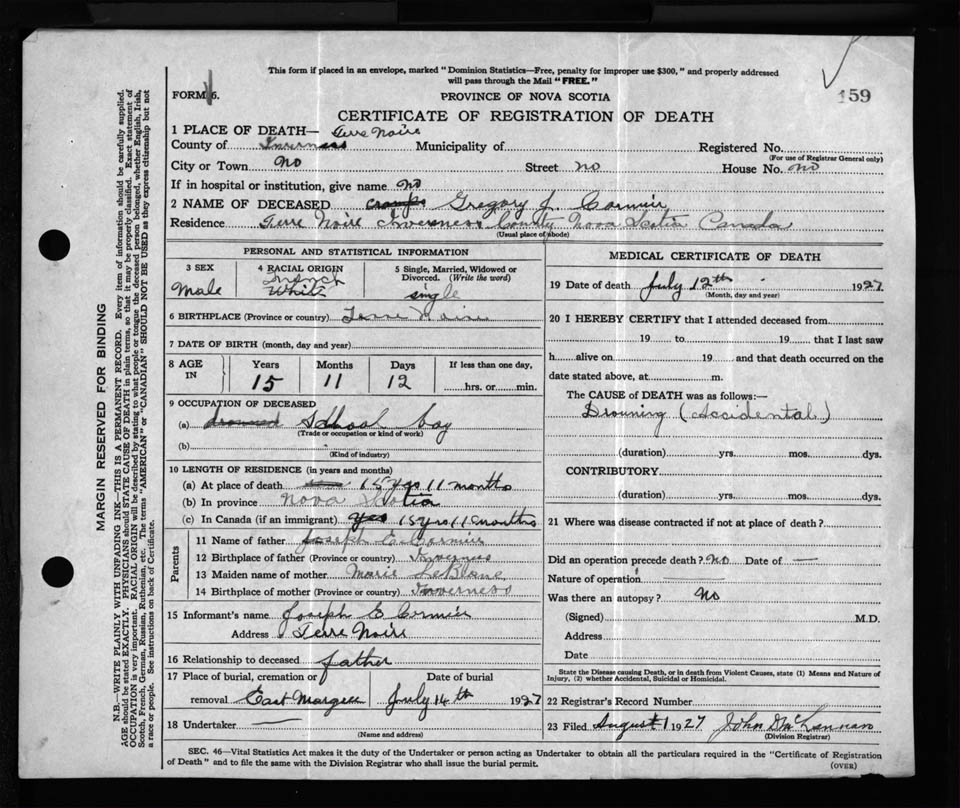 This form if placed in an envelope, marked "Dominion Statistics—Free, penalty for improper use $300," and properly addressed
will pass through the Mail "FREE."
FORM 6.
PROVINCE OF NOVA SCOTIA
159
CERTIFICATE OF REGISTRATION OF DEATH
1 PLACE OF DEATH— Terre Noire
County of Inverness Municipality of Registered No.
(For use of Registrar General only)
City or Town No Street no House No. no
If in hospital or institution, give name No
2 NAME OF DECEASED Gregory J. Cormier
Residence Terre Noire Inverness County Nova Scotia Canada
(Usual place of abode)
PERSONAL AND STATISTICAL INFORMATION
3 SEX 4 RACIAL ORIGIN 5 Single, Married, Widowed or
Divorced. (Write the word)
French
Male White single
6 BIRTHPLACE (Province or country) Terre Noire
7 DATE OF BIRTH (month, day and year)
8 AGE Years Months Days If less than one day,
IN 15 11 12 hrs. or min.
9 OCCUPATION OF DECEASED
(a) drowned School boy
(Trade or occupation or kind of work)
(b)
(Kind of industry)
10 LENGTH OF RESIDENCE (in years and months)
(a) At place of death 15 yrs 11 months
(b) In province Nova Scotia
(c) In Canada (if an immigrant) yes 15 yrs 11 months
Parents
11 Name of father Joseph E Cormier
12 Birthplace of father (Province or country) Inverness
13 Maiden name of mother Marie LeBlanc
14 Birthplace of mother (Province or country) Inverness
15 Informant's name Joseph E Cormier
Address Terre Noire
16 Relationship to deceased father
17 Place of burial, cremation or Date of burial
removal East Margaree July 14th 1927
18 Undertaker —
(Name and address)
MEDICAL CERTIFICATE OF DEATH
19 Date of death July 12th 1927
(Month, day and year)
20 I HEREBY CERTIFY that I attended deceased from
19 to 19 that I last saw
h alive on 19 and that death occurred on the
date stated above, at m.
The CAUSE of DEATH was as follows:—
Drowning (Accidental)
(duration) yrs. mos. dys.
CONTRIBUTORY
(duration) yrs. mos. dys.
21 Where was disease contracted if not at place of death?
Did an operation precede death? No Date of —
Nature of operation —
Was there an autopsy? No
(Signed) M.D.
Address
Date
State the Disease causing Death, or in death from Violent Causes, state (1) Means and Nature of
Injury, (2) whether Accidental, Suicidal or Homicidal.
22 Registrar's Record Number
23 Filed August 1 1927 John D McLennan
(Division Registrar)
SEC. 46—Vital Statistics Act makes it the duty of the Undertaker or person acting as Undertaker to obtain all the particulars required in the "Certificate of Registration
of Death" and to file the same with the Division Registrar who shall issue the burial permit.
(OVER)
MARGIN RESERVED FOR BINDING
N.B.—WRITE PLAINLY WITH UNFADING INK—THIS IS A PERMANENT RECORD. Every item of information should be carefully supplied.
AGE should be stated EXACTLY. PHYSICIANS should STATE CAUSE OF DEATH in plain terms, so that it may be properly classified. Exact statement of
OCCUPATION is very important. RACIAL ORIGIN will be described by stating to what people or tongue the deceased person belonged, whether English, Irish,
Scotch, French, German, Russian, Ruthenian, etc. The terms "AMERICAN" or "CANADIAN" SHOULD NOT BE USED as they express citizenship but not
a race or people. See instructions on back of Certificate.